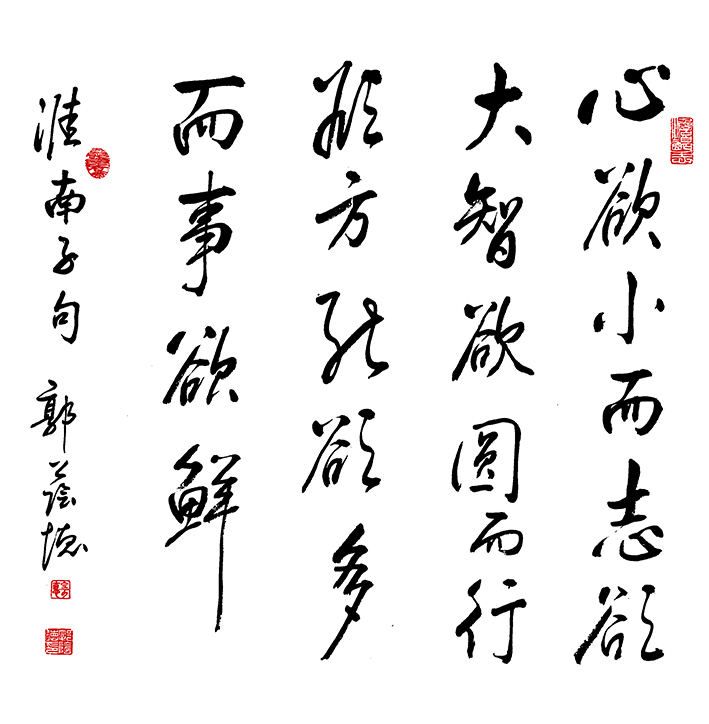 心欲小而志欲
大智欲圆而行
欲方能欲多
而事欲鲜
淮南子句 郭荫